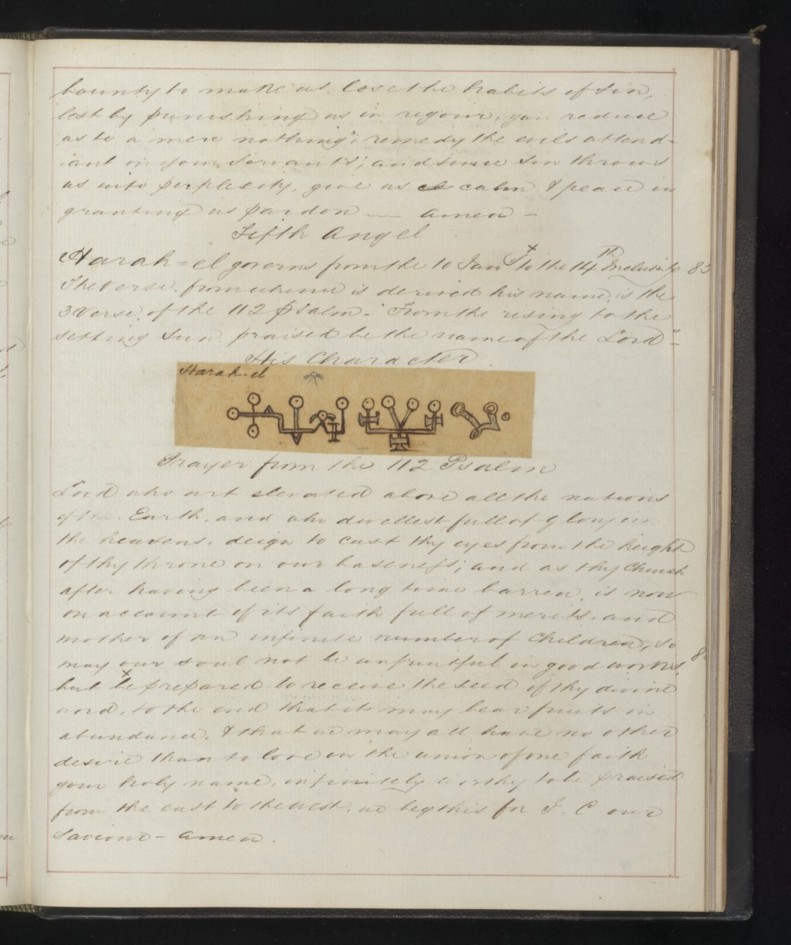 bounty to make us lose the habits of sin,
lest by punishing us in rigour, you reduce
us to a mere nothing; remedy the evils attend-
ant on your servants; and since sin throws
us into perplexity, give us calm & peace in
granting us pardon — amen —
Fifth Angel
Harah=el governs from the 10 Jan to the 14th Inclusive
The verse from whence is derived his name, is the
3 Verse, of the 112 Psalm. "From the rising to the
setting Sun, praised be the name of the Lord"
His Character
Harah-el
Prayer from the 112 Psalm
Lord who art elevated above all the nations
of the Earth, and who dwellest full of glory in
the heavens, deign to cast thy eyes from the height
of thy throne on our baseness; and as thy Church
after having been a long time barren, is now
on account of its faith full of merits, and
mother of an infinite number of Children, so
may our soul not be unfruitful in good works,
but be prepared to receive the seed of thy divine
word, to the end that it may bear fruits in
abundance, & that we may all have no other
desire than to love in the union of one faith
your holy name, infinitely worthy to be praised
from the east to the west; we beg this for J. C our
Saviour — amen.